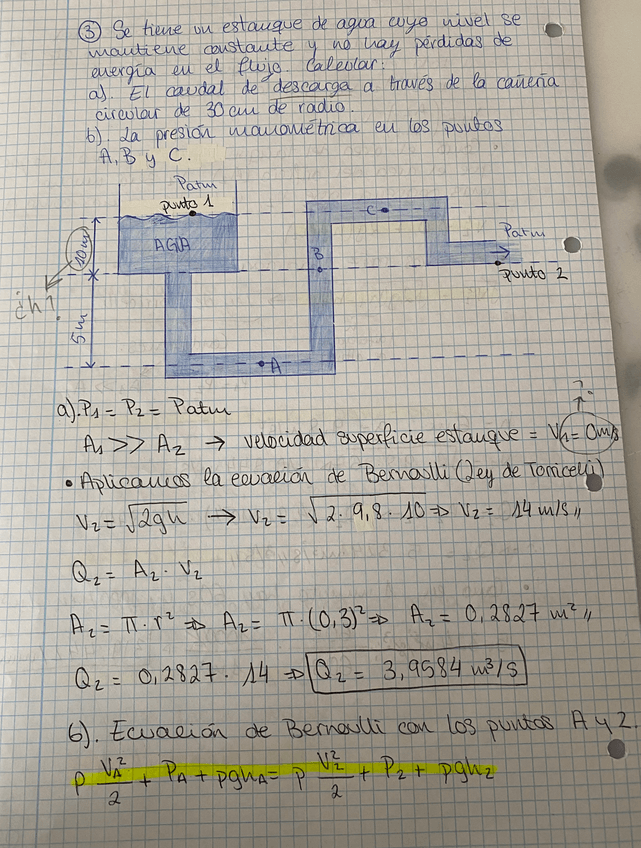 ③ Se tiene un estanque de agua cuyo nivel se
mantiene constante y no hay pérdidas de
energía en el flujo. Calcular:
a). El caudal de descarga a través de la cañería
circular de 30 cm de radio.
b). La presión manométrica en los puntos
A, B y C.
Patm
punto 1
AGUA
10m
¿h?
5m
A
B
C
Patm
punto 2
a). P₁ = P₂ = Patm
?
A₁ >> A₂ → velocidad superficie estanque = V₁ = 0m/s
• Aplicamos la ecuación de Bernoulli (Ley de Torricelli)
V₂ = √2gh → V₂ = √2 · 9,8 · 10 ⇒ V₂ = 14 m/s //
Q₂ = A₂ · V₂
A₂ = π · r² ⇒ A₂ = π · (0,3)² ⇒ A₂ = 0,2827 m² //
Q₂ = 0,2827 · 14 ⇒ Q₂ = 3,9584 m³/s
b). Ecuación de Bernoulli con los puntos A y 2.
ρ V_A²/2 + P_A + ρgh_A = ρ V₂²/2 + P₂ + ρgh₂